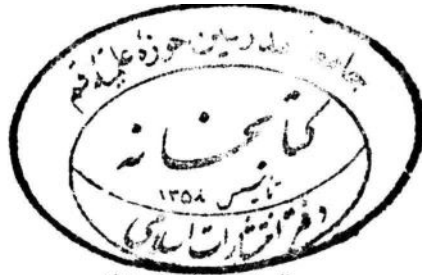 جامعه مدرسین حوزه علمیه قم
کتابخانه
تاسیس ۱۳۵۸
دفتر انتشارات اسلامی